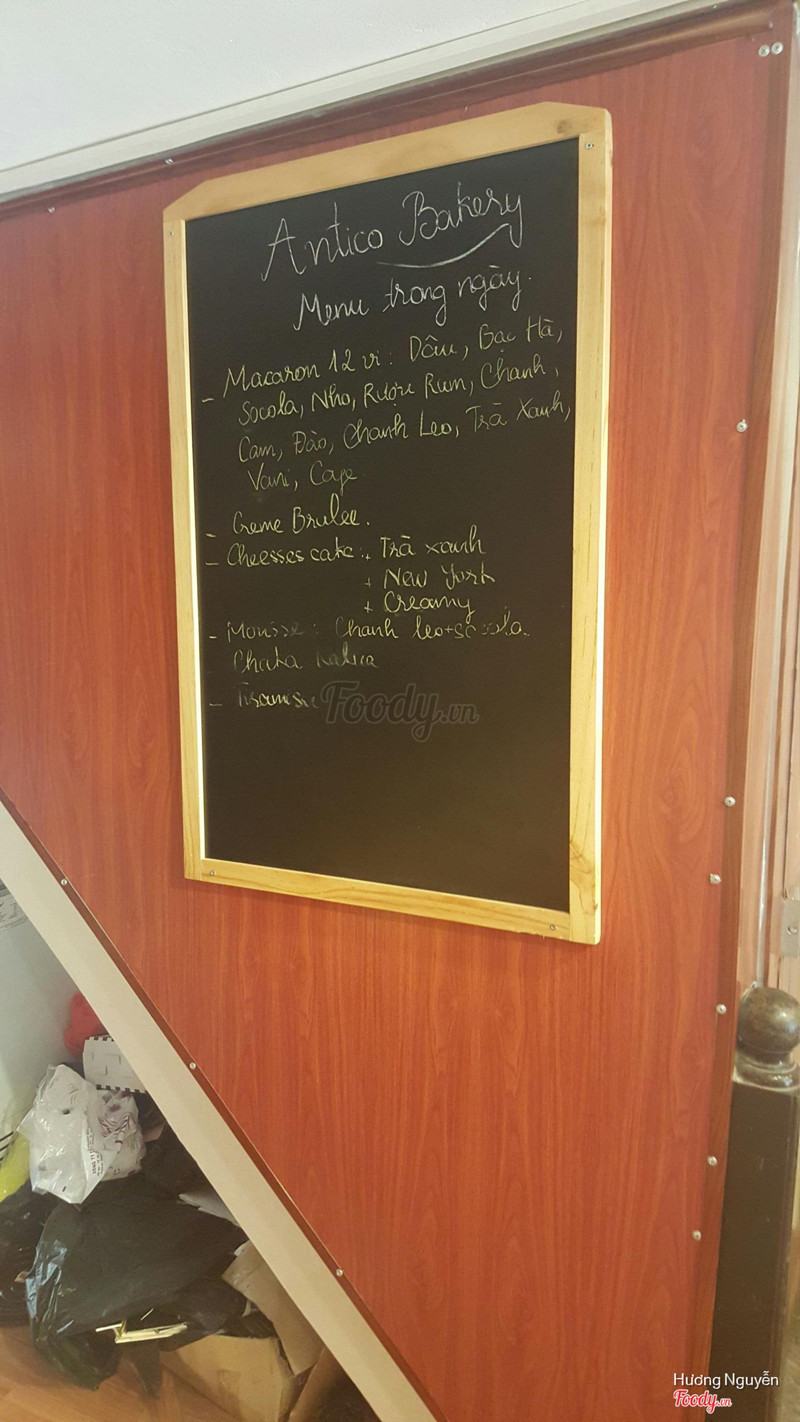 Antico Bakery
Menu trong ngày.
- Macaron 12 vi : Dâu, Bạc Hà,
Socola, Nho, Rượu Rum, Chanh,
Cam, Đào, Chanh Leo, Trà Xanh,
Vani, Cafe
- Creme Brulee.
- Cheesses cake : + Trà xanh
+ New York
+ Creamy
- Mousse : Chanh leo + socola.
- Tiramisu
Foody.vn
Hương Nguyễn
Foody.vn